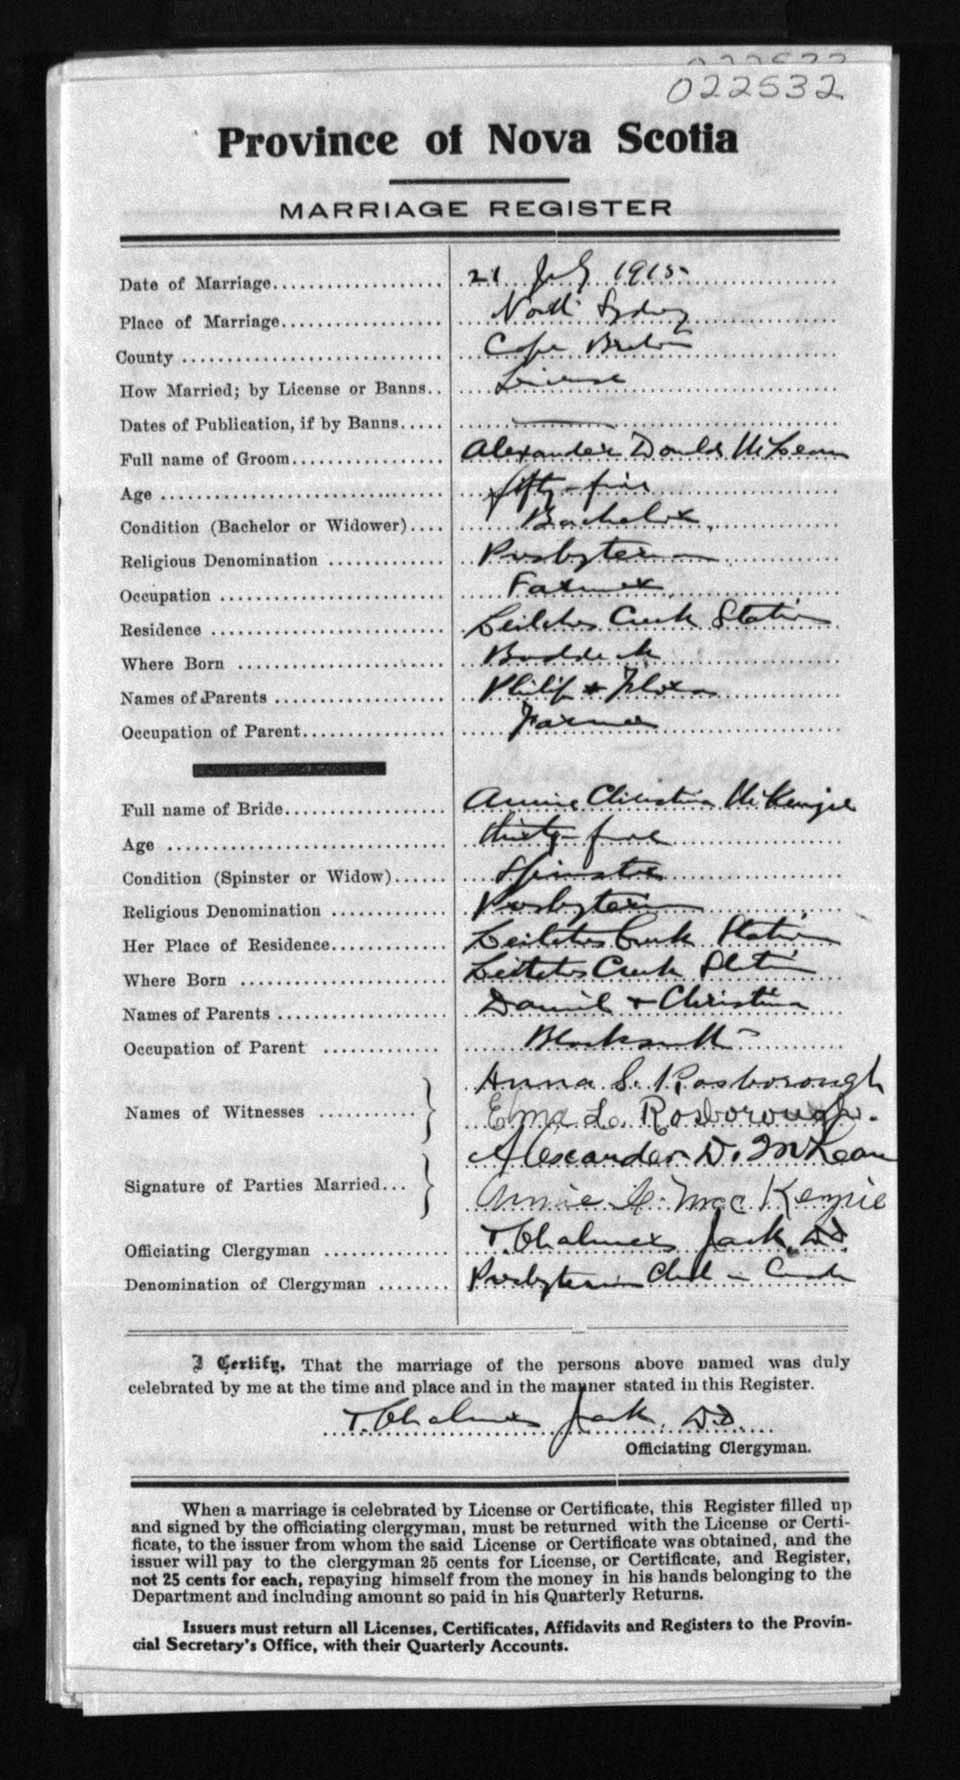 022532
Province of Nova Scotia
MARRIAGE REGISTER
Date of Marriage 21 July 1915
Place of Marriage North Sydney
County Cape Breton
How Married; by License or Banns License
Dates of Publication, if by Banns —
Full name of Groom Alexander Donald McLean
Age fifty-five
Condition (Bachelor or Widower) Bachelor
Religious Denomination Presbyterian
Occupation Farmer
Residence Leitches Creek Station
Where Born Baddeck
Names of Parents Philip + Flora
Occupation of Parent Farmer
Full name of Bride Annie Christina McKenzie
Age thirty-five
Condition (Spinster or Widow) Spinster
Religious Denomination Presbyterian
Her Place of Residence Leitches Creek Station
Where Born Leitches Creek Station
Names of Parents Daniel + Christina
Occupation of Parent Blacksmith
Names of Witnesses Anna S. Rosborough
Edna L. Rosborough.
Signature of Parties Married Alexander D. McLean
Annie C. MacKenzie
Officiating Clergyman T. Chalmers Jack, D.D.
Denomination of Clergyman Presbyterian Chch in Canada
I Certify, That the marriage of the persons above named was duly
celebrated by me at the time and place and in the manner stated in this Register.
T. Chalmers Jack, D.D.
Officiating Clergyman.
When a marriage is celebrated by License or Certificate, this Register filled up
and signed by the officiating clergyman, must be returned with the License or Certi-
ficate, to the issuer from whom the said License or Certificate was obtained, and the
issuer will pay to the clergyman 25 cents for License, or Certificate, and Register,
not 25 cents for each, repaying himself from the money in his hands belonging to the
Department and including amount so paid in his Quarterly Returns.
Issuers must return all Licenses, Certificates, Affidavits and Registers to the Provin-
cial Secretary's Office, with their Quarterly Accounts.